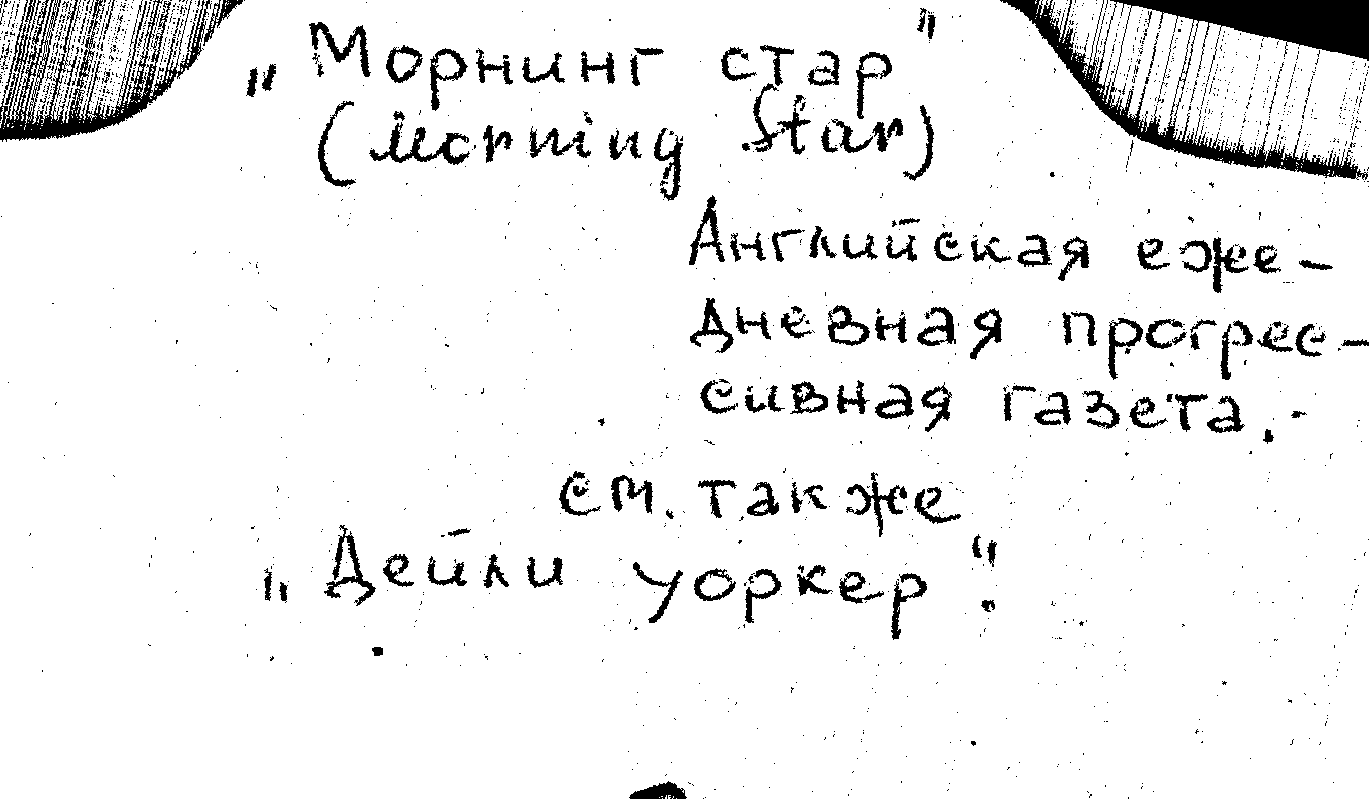 „Морнинг стар"
(Morning Star)
Английская еже-
дневная прогрес-
сивная газета.
см. также
„Дейли уоркер".